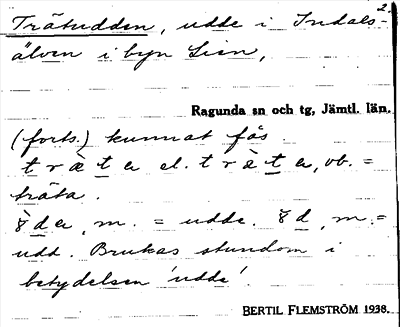 2.
Träudden, udde i Indals-
älven i byn Lien,
Ragunda sn och tg, Jämtl. län.
(forts.) kunnat fås.
träta el. trèta, vb. =
träta.
m. = udde. m. =
udd. Brukas stundom i
betydelsen 'udde'.
BERTIL FLEMSTRÖM 1938.